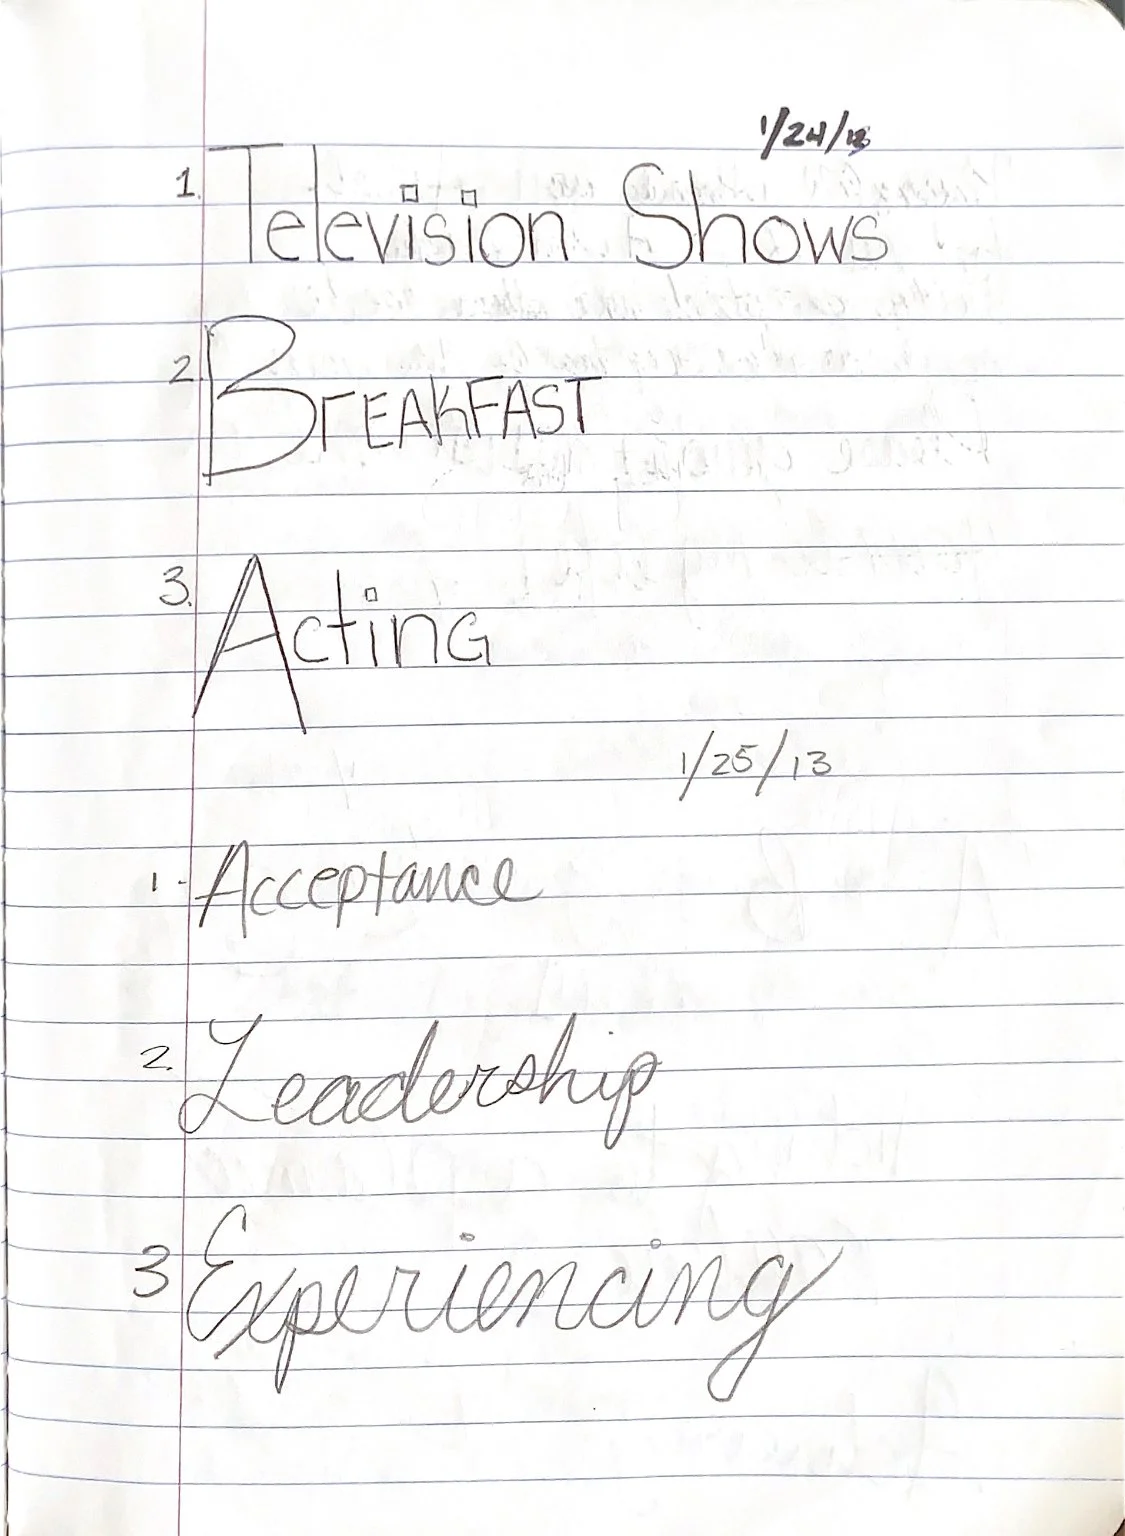 1/24/13
1. Television Shows
2. BrEAKFAST
3. ActinG
1/25/13
1. Acceptance
2. Leadership
3 Experiencing